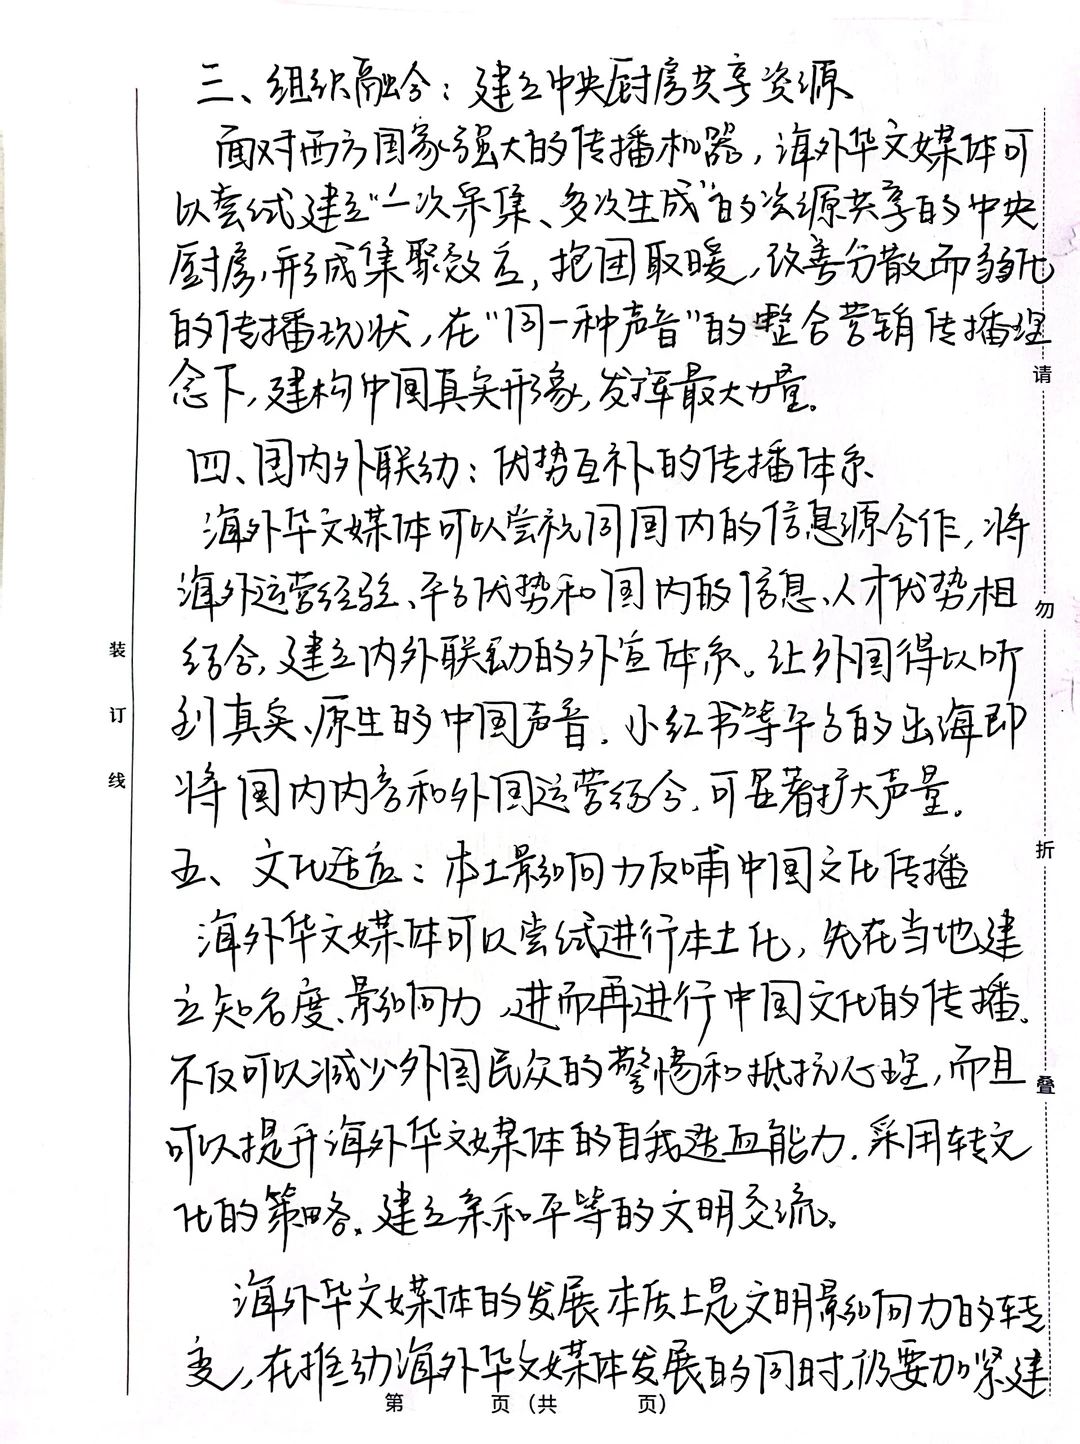 三、组织融合：建立中央厨房共享资源
面对西方国家强大的传播机器，海外华文媒体可
以尝试建立“一次采集、多次生成”的资源共享的中央
厨房，形成集聚效应，抱团取暖，改善分散而弱化
的传播现状，在“同一种声音”的整合营销传播理
念下，建构中国真实形象，发挥最大力量。
请
四、国内外联动：优势互补的传播体系
海外华文媒体可以尝试同国内的信息源合作，将
海外运营经验、平台优势和国内的信息、人才优势相
勿
结合，建立内外联动的外宣体系。让外国得以听
到真实、原生的中国声音。小红书等平台的出海即
将国内内容和外国运营结合，可显著扩大声量。
装
订
线
五、文化适应：本土影响力反哺中国文化传播
折
海外华文媒体可以尝试进行本土化，先在当地建
立知名度、影响力，进而再进行中国文化的传播。
不仅可以减少外国民众的警惕和抵抗心理，而且
叠
可以提升海外华文媒体的自我造血能力。采用转文
化的策略，建立亲和平等的文明交流。
海外华文媒体的发展本质上是文明影响力的转
变，在推动海外华文媒体发展的同时，仍要加紧建
第 页（共 页）